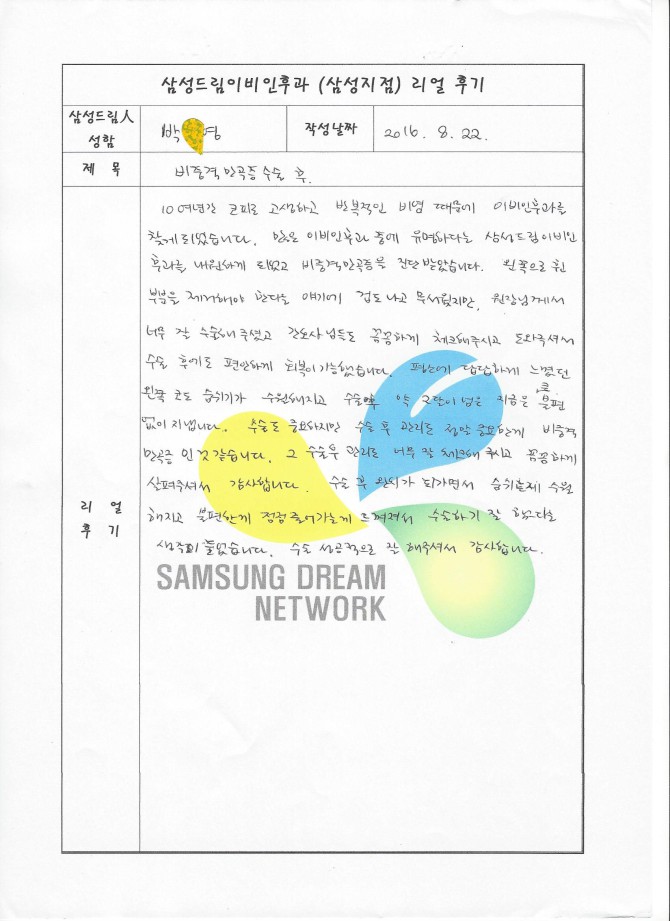 삼성드림이비인후과 (삼성지점) 리얼 후기
삼성드림人
성함
박 영
작성날짜
2016. 8. 22.
제 목
비중격만곡증수술 후.
리 얼
후 기
10여년간 코피로 고생하고 반복적인 비염 때문에 이비인후과를
찾게되었습니다. 많은 이비인후과 중에 유명하다는 삼성드림이비인
후과를 내원하게 되었고 비중격만곡증을 진단받았습니다. 왼쪽으로 휜
부분을 제거해야 한다는 얘기에 겁도나고 무서웠지만, 원장님께서
너무 잘 수술해주셨고 간호사님들도 꼼꼼하게 체크해주시고 도와주셔서
수술 후에도 편안하게 회복이 가능했습니다. 평소에 답답하게 느꼈던
왼쪽 코도 숨쉬기가 수월해지고 수술후 약 2달이 넘은 지금은 큰 불편
없이 지냅니다. 수술도 중요하지만 수술 후 관리도 정말 중요한게 비중격
만곡증 인 것 같습니다. 그 수술후 관리도 너무 잘 체크해 주시고 꼼꼼하게
살펴주셔서 감사합니다. 수술 후 완치가 되가면서 숨쉬는게 수월
해지고 불편한게 점점 줄어가는게 느껴져서 수술하기 잘 했다는
생각이 들었습니다. 수술 성공적으로 잘 해주셔서 감사합니다.
SAMSUNG DREAM
NETWORK